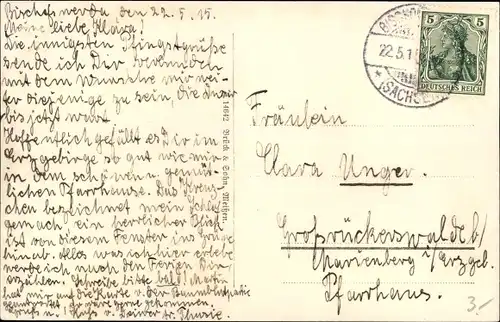 Bischofswerda, den 22.5.15.
Meine liebe Klara!
Die innigsten Pfingstgrüße
sende ich Dir verbunden
mit dem Wunsche mir wei-
ter diejenige zu sein, die
bis jetzt warst.
Hoffentlich gefällt es Dir im
Erzgebirge so gut wie mir
in dem schönen gemüt-
lichen Pfarrhause. Das Kreuz-
chen bezeichnet mein Schlaf-
gemach, ein herrlicher Blick
ist von diesem Fenster ins Grüne
hinaus. Alles was ich hier erlebe
werde ich nach den Ferien Dir
erzählen. Schreibe bitte bald! Martin
hat mir auf die Karte v. der
Gruß u. Kuß v. Deiner tr.
14642 Brück & Sohn, Meißen.
22.5.1
(SACHSEN)
5 5
DEUTSCHES REICH
Fräulein
Clara Unger.
Großrückerswalde b/
Marienberg i/Erzgeb.
Pfarrhaus.
3.-